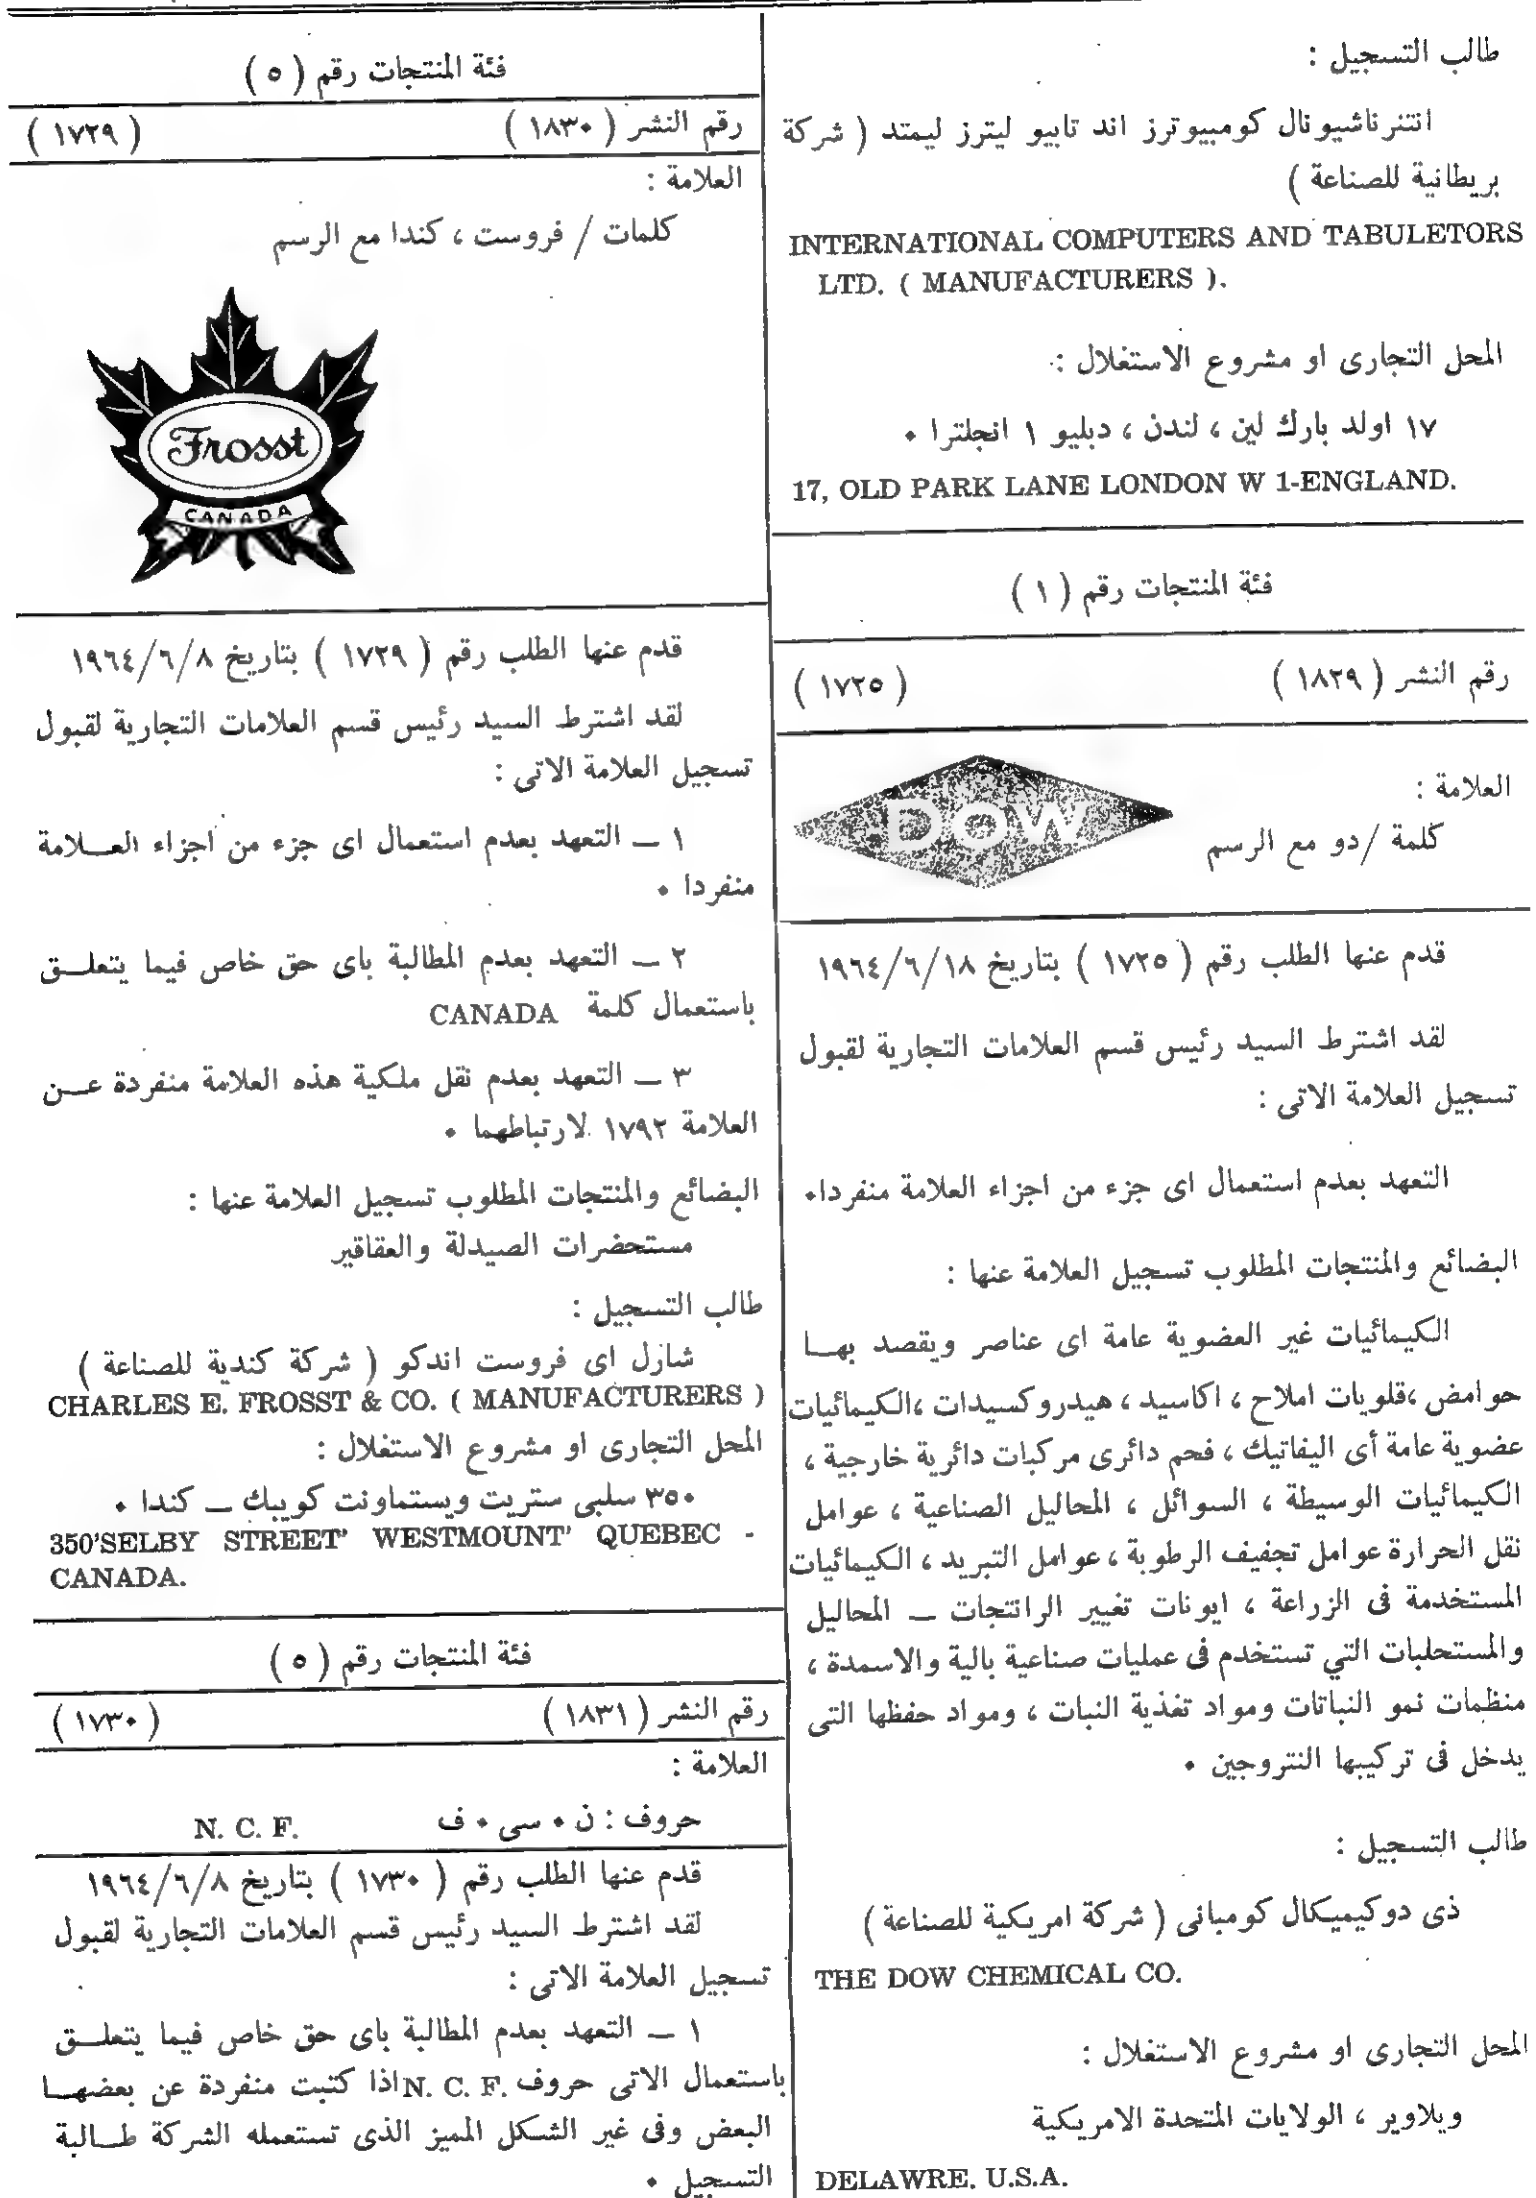 طالب التسجيل :
انتنرناشيونال كومبيوترز اند تابيو ليترز ليمتد ( شركة
بريطانية للصناعة )
INTERNATIONAL COMPUTERS AND TABULETORS
LTD. ( MANUFACTURERS ).
المحل التجارى او مشروع الاستغلال :
١٧ اولد بارك لين ، لندن ، دبليو ١ انجلترا .
17, OLD PARK LANE LONDON W 1-ENGLAND.
فئة المنتجات رقم ( ١ )
رقم النشر ( ١٨٢٩ ) ( ١٧٢٥ )
العلامة :
كلمة /دو مع الرسم
DOW
قدم عنها الطلب رقم ( ١٧٢٥ ) بتاريخ ١٩٦٤/٦/١٨
لقد اشترط السيد رئيس قسم العلامات التجارية لقبول
تسجيل العلامة الاتى :
التعهد بعدم استعمال اى جزء من اجزاء العلامة منفردا.
البضائع والمنتجات المطلوب تسجيل العلامة عنها :
الكيمائيات غير العضوية عامة اى عناصر ويقصد بهــا
حوامض ،قلويات املاح ، اكاسيد ، هيدروكسيدات ،الكيمائيات
عضوية عامة أى اليفاتيك ، فحم دائرى مركبات دائرية خارجية ،
الكيمائيات الوسيطة ، السوائل ، المحاليل الصناعية ، عوامل
نقل الحرارة عوامل تجفيف الرطوبة ، عوامل التبريد ، الكيمائيات
المستخدمة فى الزراعة ، ايونات تغيير الراتنجات ــ المحاليل
والمستحلبات التي تستخدم فى عمليات صناعية بالية والاسمدة ،
منظمات نمو النباتات ومواد تغذية النبات ، ومواد حفظها التى
يدخل فى تركيبها النتروجين .
طالب التسجيل :
ذى دوكيميكال كومبانى ( شركة امريكية للصناعة )
THE DOW CHEMICAL CO.
المحل التجارى او مشروع الاستغلال :
ويلاوير ، الولايات المتحدة الامريكية
DELAWRE. U.S.A.
فئة المنتجات رقم ( ٥ )
رقم النشر ( ١٨٣٠ ) ( ١٧٢٩ )
العلامة :
كلمات / فروست ، كندا مع الرسم
Frosst
CANADA
قدم عنها الطلب رقم ( ١٧٢٩ ) بتاريخ ١٩٦٤/٦/٨
لقد اشترط السيد رئيس قسم العلامات التجارية لقبول
تسجيل العلامة الاتى :
١ ــ التعهد بعدم استعمال اى جزء من اجزاء العــلامة
منفردا .
٢ ــ التعهد بعدم المطالبة باى حق خاص فيما يتعلــق
باستعمال كلمة CANADA
٣ ــ التعهد بعدم نقل ملكية هذه العلامة منفردة عــن
العلامة ١٧٩٢ لارتباطهما .
البضائع والمنتجات المطلوب تسجيل العلامة عنها :
مستحضرات الصيدلة والعقاقير
طالب التسجيل :
شازل اى فروست اندكو ( شركة كندية للصناعة )
CHARLES E. FROSST & CO. ( MANUFACTURERS )
المحل التجارى او مشروع الاستغلال :
٣٥٠ سلبى ستريت ويستماونت كويبك ــ كندا .
350'SELBY STREET' WESTMOUNT' QUEBEC -
CANADA.
فئة المنتجات رقم ( ٥ )
رقم النشر ( ١٨٣١ ) ( ١٧٣٠ )
العلامة :
حروف : ن . سى . ف N. C. F.
قدم عنها الطلب رقم ( ١٧٣٠ ) بتاريخ ١٩٦٤/٦/٨
لقد اشترط السيد رئيس قسم العلامات التجارية لقبول
تسجيل العلامة الاتى :
١ ــ التعهد بعدم المطالبة باى حق خاص فيما يتعلــق
باستعمال الاتى حروف N. C. F. اذا كتبت منفردة عن بعضهــا
البعض وفى غير الشكل المميز الذى تستعمله الشركة طــالبة
التسجيل .